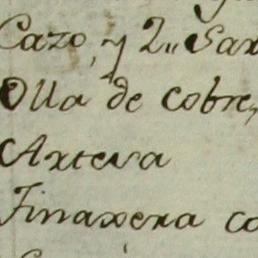 Cazo, y 2„ Sar
Olla de cobre,
Artesa
Tinaxera co